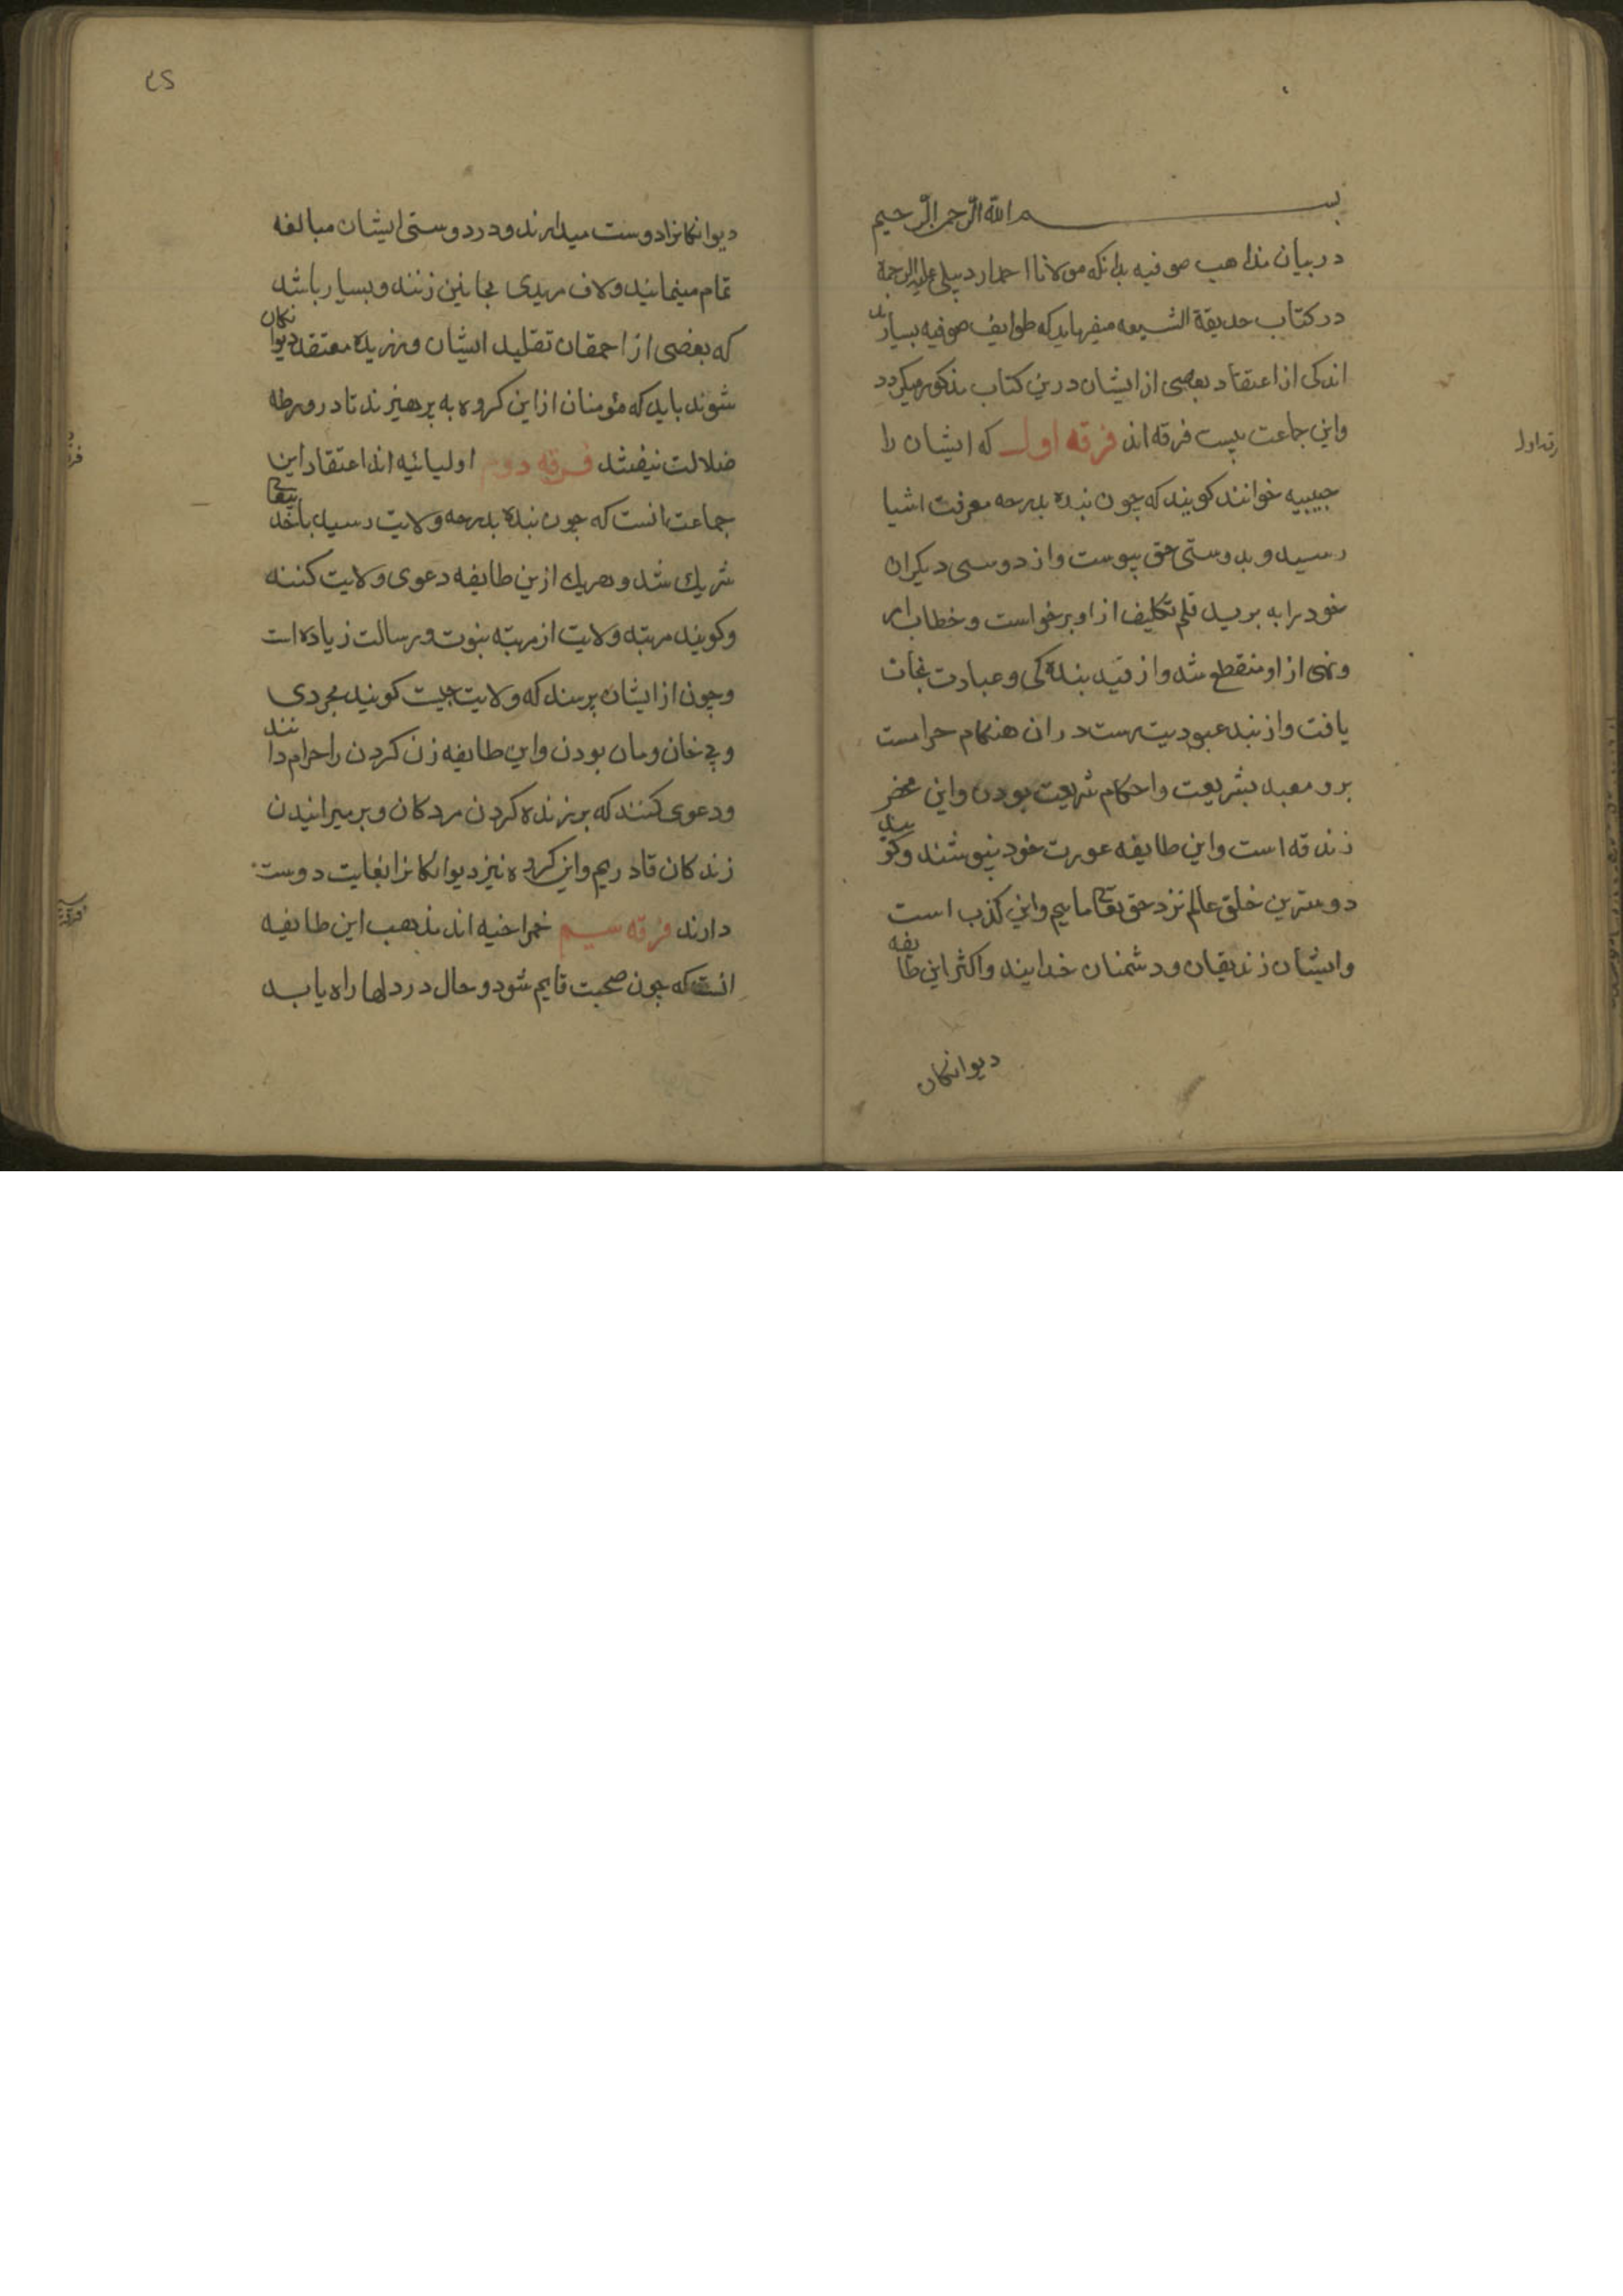 بسم الله الرحمن الرحیم
در بیان مذاهب صوفیه بدانکه مولانا احمد اردبیلی علیه الرحمة
در کتاب حدیقة الشیعه میفرماید که طوایف صوفیه بسیارند
اندکی از اعتقاد بعضی از ایشان درین کتاب مذکور میکردد
واین جماعت بیست فرقه اند فرقه اول که ایشان را
حبیبیه خوانند کویند که چون بنده بدرجه معرفت اشیا
رسید و بدوستی حق پیوست واز دوستی دیکران
خود را به برید قلم تکلیف از او برخواست و خطاب امر
ونهی از او منقطع شد واز قید بنده کی وعبادت نجات
یافت واز بند عبودیت رست در ان هنکام حرامست
برو مقید بشریعت واحکام شریعت بودن واین محض
زندقه است واین طایفه عورت خود نپوشند وکویند
دوسترین خلق عالم نزد حق تعالی ماییم واین کذب است
وایشان زندیقان ودشمنان خدایند واکثر این طایفه
دیوانکان
رقه اول
دیوانکانرا دوست میدارند ودر دوستی ایشان مبالغه
تمام مینمایند ولاف مریدی مجانین زنند وبسیار باشد
که بعضی از احمقان تقلید ایشان ورزیده معتقد دیوانکان
شوند باید که مؤمنان از این کروه به پرهیزند تا در ورطه
ضلالت نیفتند فرقه دوم اولیائیه اند اعتقاد این
جماعت انست که چون بنده بدرجه ولایت رسید با خدایتعالی
شریك شد وهریك ازین طایفه دعوی ولایت کنند
وکویند مرتبه ولایت از مرتبه نبوت ورسالت زیاده است
وچون از ایشان پرسند که ولایت چیست کویند مجردی
وبی خان ومان بودن واین طایفه زن کردن را حرام دانند
ودعوی کنند که بر زنده کردن مردکان وبر میرانیدن
زندکان قادریم واین کروه نیز دیوانکانرا بغایت دوست
دارند فرقه سیم خمراخیه اند مذهب این طایفه
انست که چون صحبت قایم شود وحال در دلها راه یابد